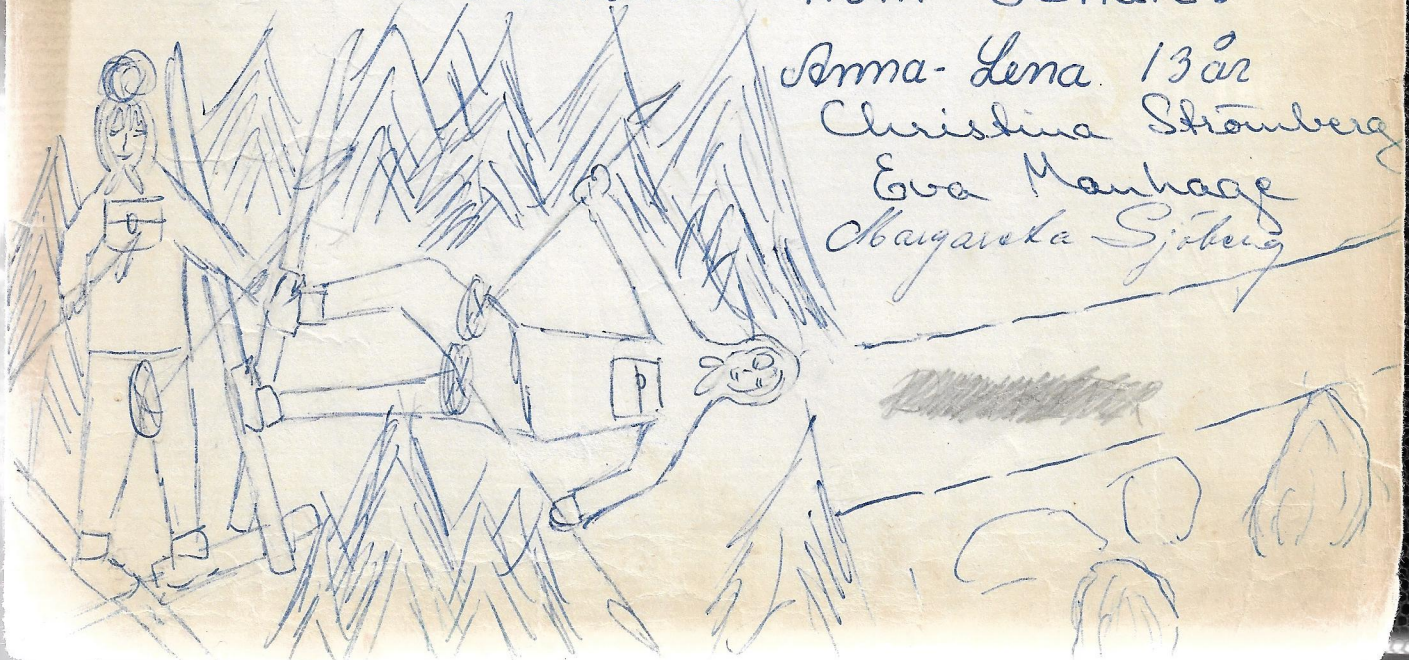 Anna-Lena 13 år
Christina Strömberg
Eva Manhage
Margareta Sjöberg